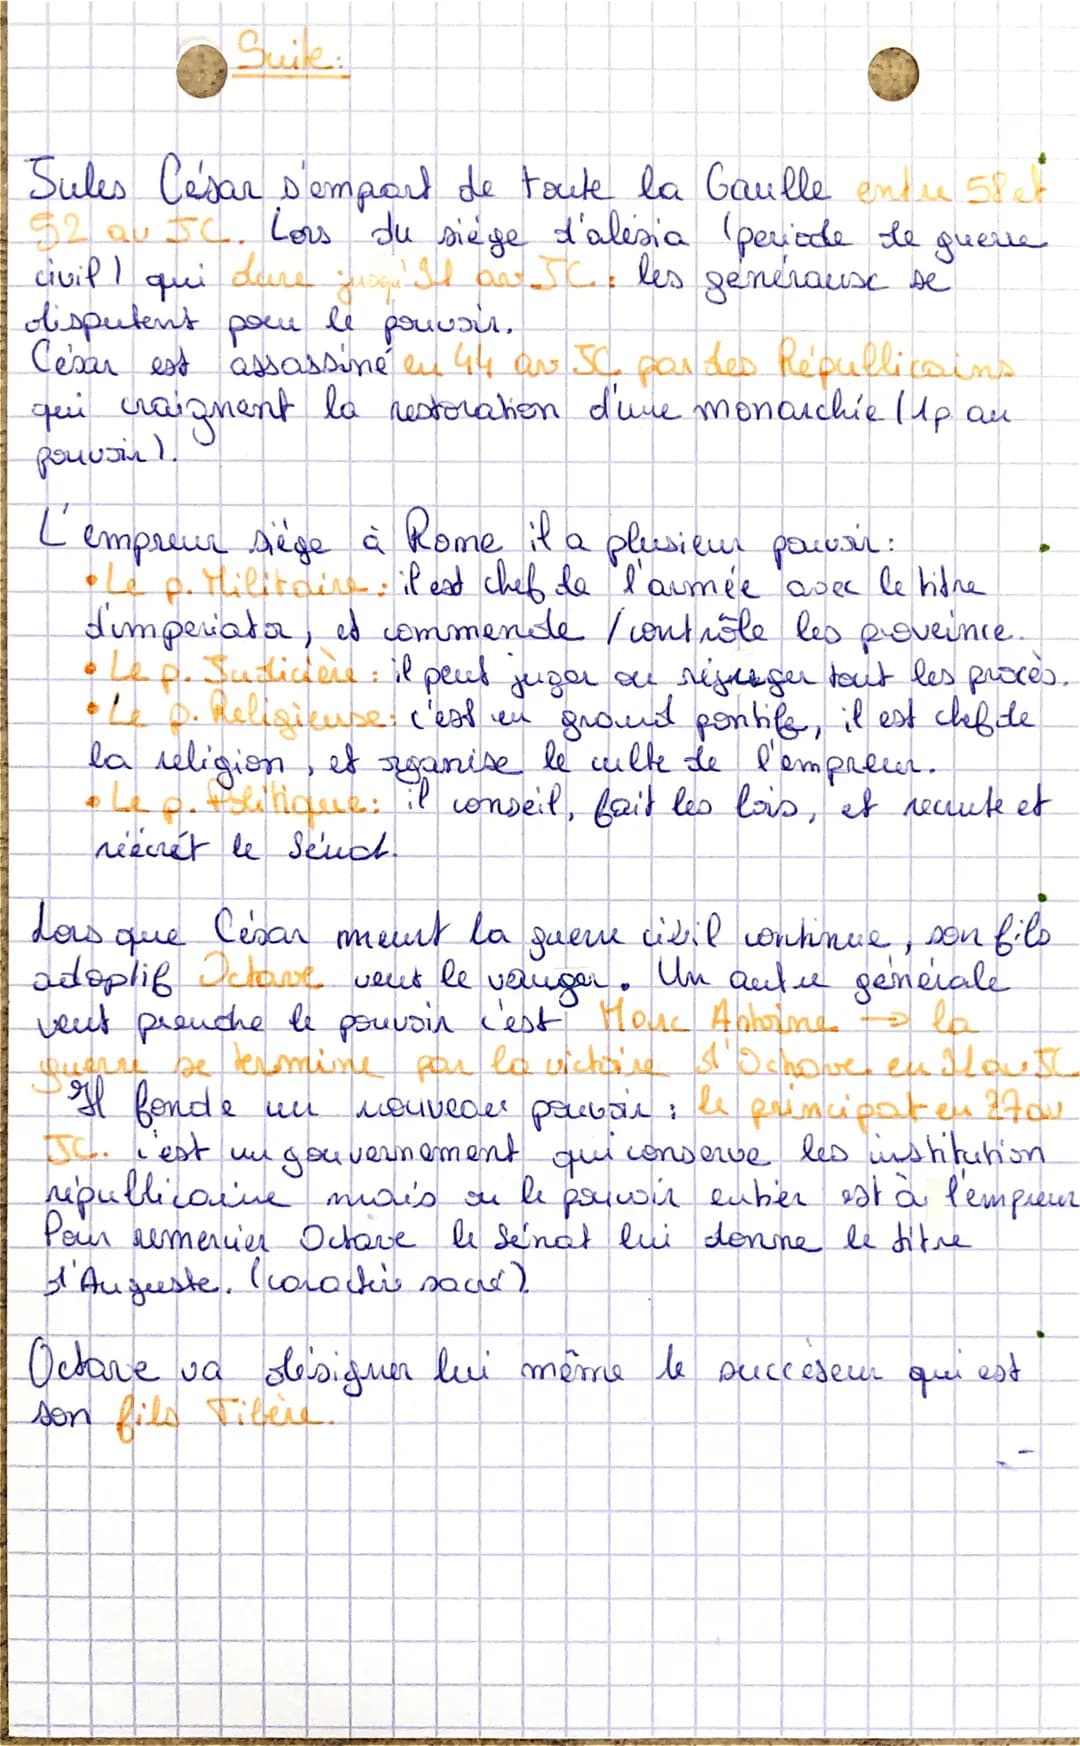 Suite:
Jules César s'empart de toute la Gaulle entre 58 et
52 av JC. Lors du siége d'alésia (periode de guerre
civil) qui dure jusqu'31 av JC: les généraux se
disputent pour le pouvoir.
César est assassiné en 44 av JC par des Républlicains
qui craignent la restoration d'une monarchie (1p au
pouvoir).
L'empreur siége à Rome il a plusieur pouvoir:
• Le p. Militaire: il est chef de l'armée avec le titre
d'imperiator, et commende / contrôle les proveince.
• Le p. Judicière: il peut juger ou réjuger tout les procès.
• Le p. Religieuse: c'est un grand pontife, il est chef de
la religion, et organise le culte de l'empreur.
• Le p. Politique: il conseil, fait les lois, et recrute et
réécrét le Sénat.
Lorsque César meurt la guerre civil continue, son fils
adoptif Octave veut le vanger. Un autre générale
veut prendre le pouvoir c'est Marc Antoine → la
guerre se termine par la victoire d'Octave en 31 av JC
Il fonde un nouveau pouvoir: le principat en 27 av
JC. c'est un gouvernement qui conserve les institution
républlicaine mais ou le pouvoir entier est à l'empreur
Pour remercier Octave le Sénat lui donne le titre
d'Auguste. (caractère sacré)
Octave va désigner lui même le succéseur qui est
son fils Tibère.